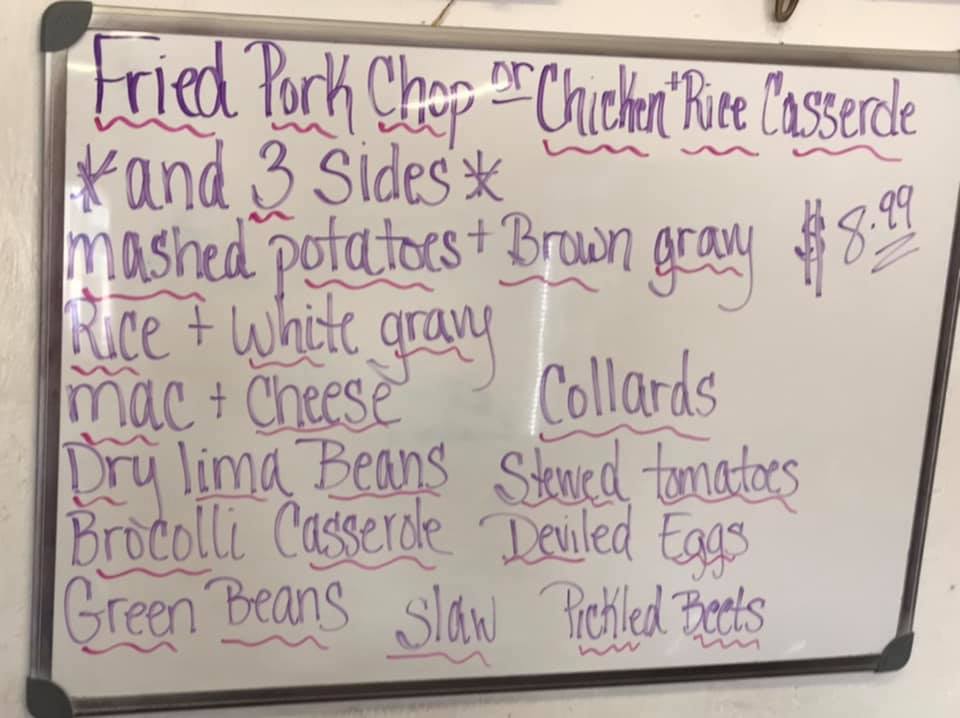 Fried Pork Chop or Chicken + Rice Casserole
*and 3 Sides*
mashed potatoes + Brown gravy $8.99
Rice + White gravy
mac + Cheese Collards
Dry lima Beans Stewed tomatoes
Brocolli Casserole Deviled Eggs
Green Beans Slaw Pickled Beets